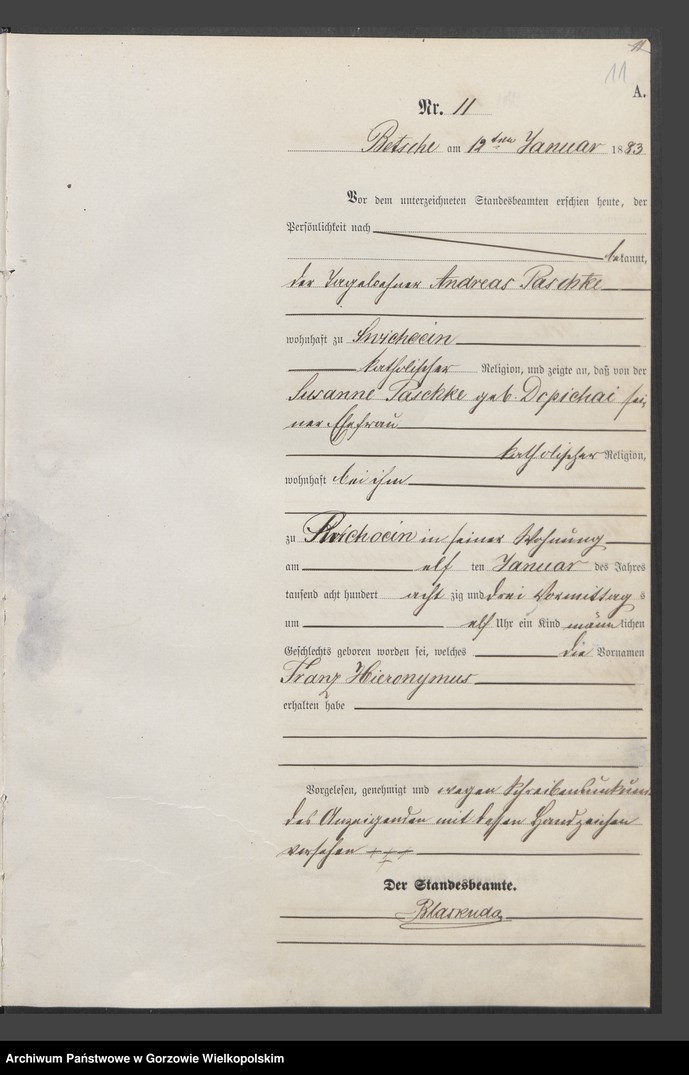 11
11
A.
Nr. 11
Betsche am 12ten Januar 1883
Vor dem unterzeichneten Standesbeamten erschien heute, der
Persönlichkeit nach
bekannt,
der Tagelöhner Andreas Paschke
wohnhaft zu Swichocin
katholischer Religion, und zeigte an, daß von der
Susanne Paschke geb. Dopichai sei-
ner Ehefrau
katholischer Religion,
wohnhaft bei ihm
zu Swichocin in seiner Wohnung
am elf ten Januar des Jahres
tausend acht hundert acht zig und drei Vormittags
um elf Uhr ein Kind männlichen
Geschlechts geboren worden sei, welches die Vornamen
Franz Hieronymus
erhalten habe
Vorgelesen, genehmigt und wegen Schreibensunkunde
des Anzeigenden mit dessen Handzeichen
versehen +++
Der Standesbeamte.
Archiwum Państwowe w Gorzowie Wielkopolskim